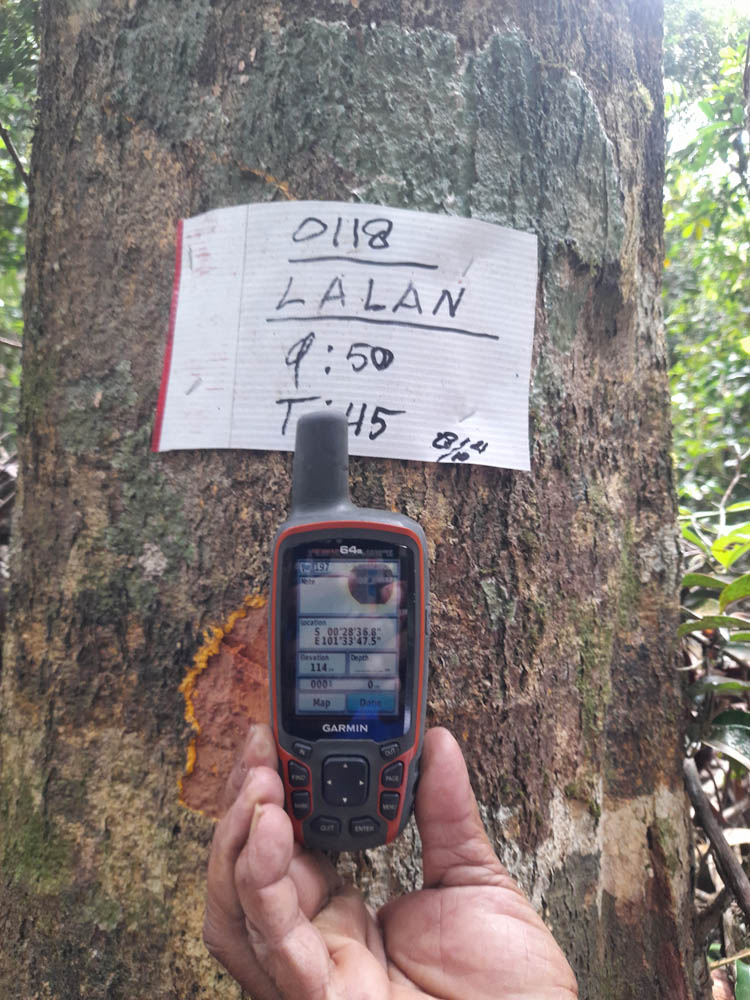 0118
LALAN
φ: 50
T: 45
64s
197
Note
Location
S 00°28'36.8"
E101°33'47.5"
Elevation
Depth
114
Map
Done
GARMIN
IN
OUT
FIND
PAGE
MARK
MENU
QUIT
ENTER